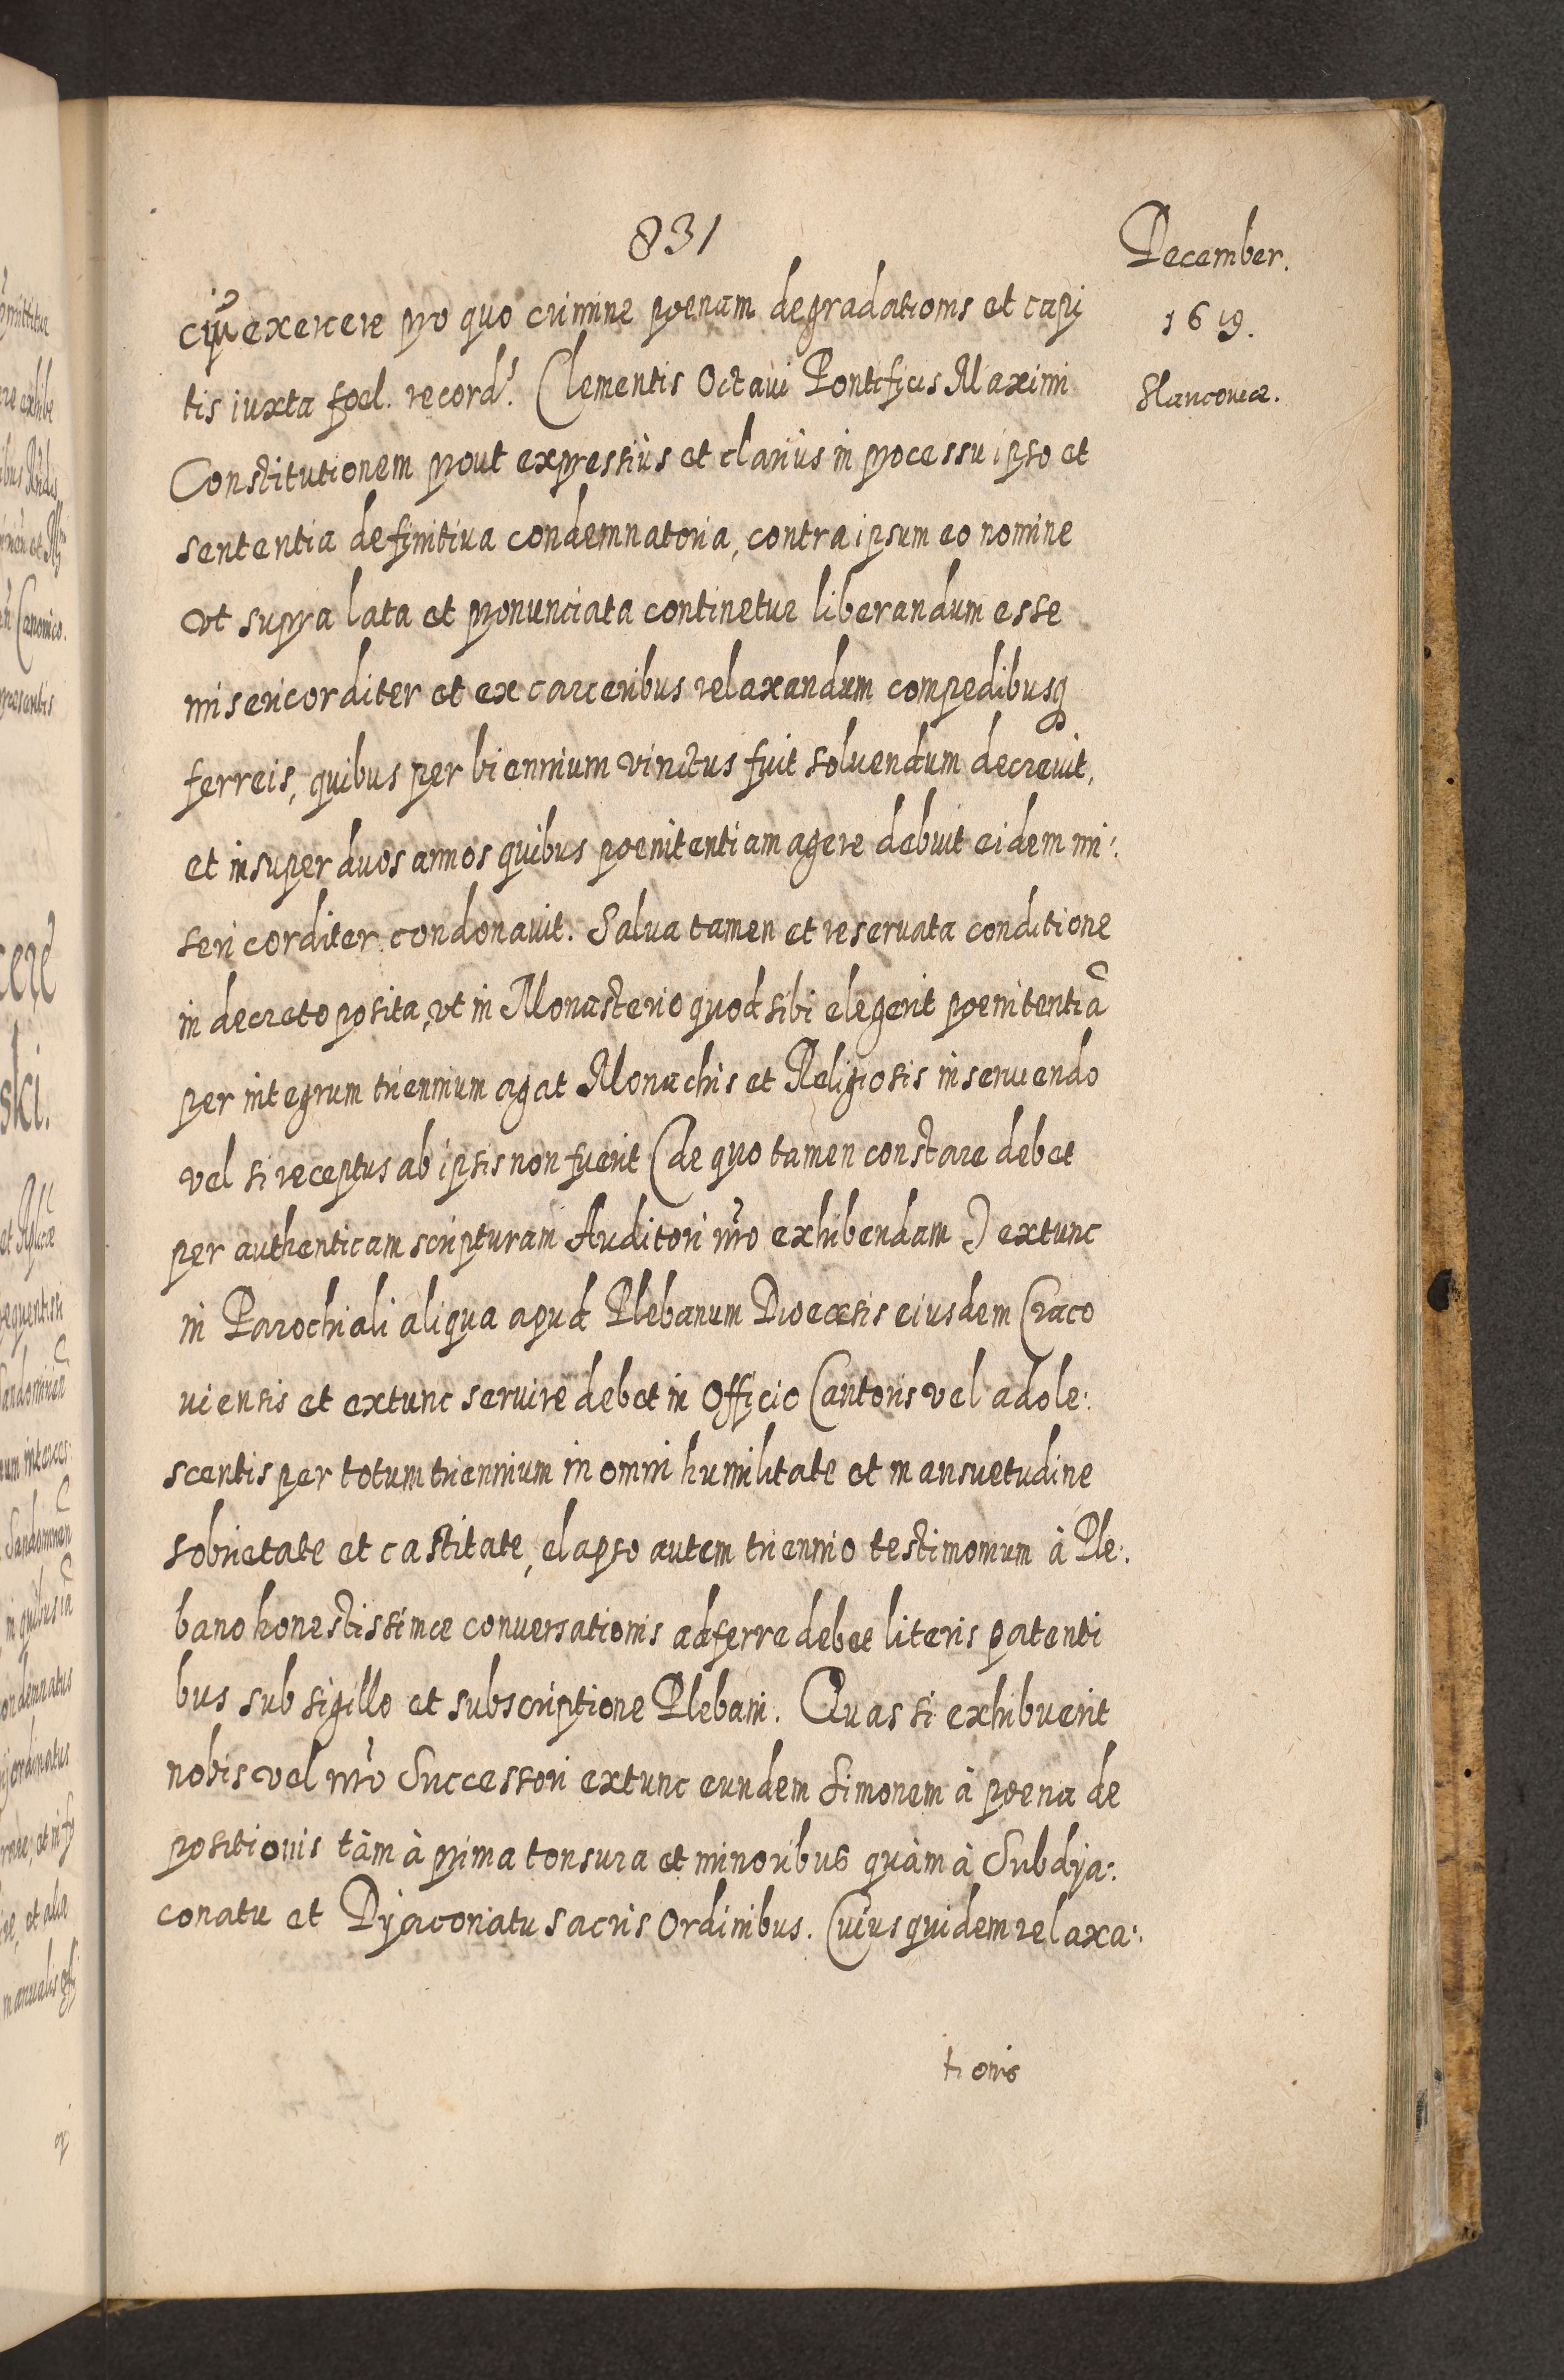 831
December.
1619.
cium exercere pro quo crimine poenam degradationis et capi
tis iuxta foel. record. Clementis Octaui Pontificis Maximi
Constitutionem prout expressiùs et clariùs in processu ipso et
sententia definitiua condemnatoria, contra ipsum eo nomine
vt supra lata et pronunciata continetur liberandum esse
misericorditer et ex carceribus relaxandum compedibusq
ferreis, quibus per biennium vinctus fuit soluendum decreuit,
et insuper duos annos quibus poenitentiam agere debuit eidem mi:
sericorditer condonauit. Salua tamen et reseruata conditione
in decreto posita, vt in Monasterio quod sibi elegerit poenitentiã
per integrum triennium agat Monachis et Religiosis inseruiendo
vel si receptus ab ipsis non fuerit (de quo tamen constare debet
per authenticam scripturam Auditori nr̃o exhibendam) extunc
in Parochiali aliqua apud Plebanum Dioecesis eiusdem Craco
uiensis et extunc seruire debet in Officio Cantoris vel adole:
scentis per totum triennium in omni humilitate et mansuetudine
sobrietate et castitate, elapso autem triennio testimonium à Ple:
bano honestissimae conuersationis adferre debet literis patenti
bus sub sigillo et subscriptione Plebani. Quas si exhibuerit
nobis vel nr̃o Successori extunc eundem Simonem à poena de
positionis tàm à prima tonsura et minoribus quàm à Subdya:
conatu et Dyaconatu sacris Ordinibus. Cuius quidem relaxa:
tionis